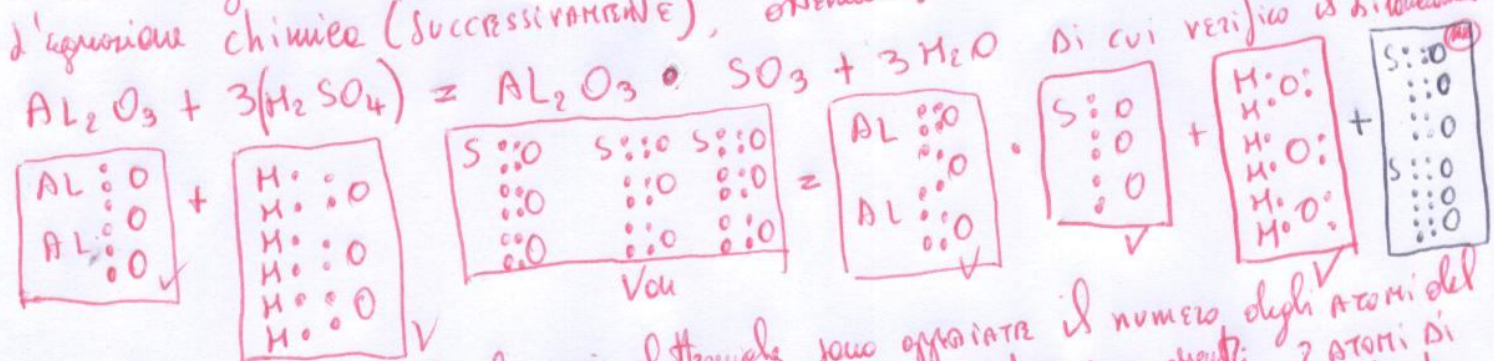 d'equazione chimica (SUCCESSIVAMENTE),
AL₂O₃ + 3(H₂SO₄) = AL₂O₃ • SO₃ + 3H₂O Di cui verifico
AL O O AL O + H O H H O H H O H S O S O S O O O O O O O = AL O O AL O • S O O O + H O H H O H H O H + S O O O S O O O
Vou
sono il numero degli ATOMI del
2 ATOMI Di